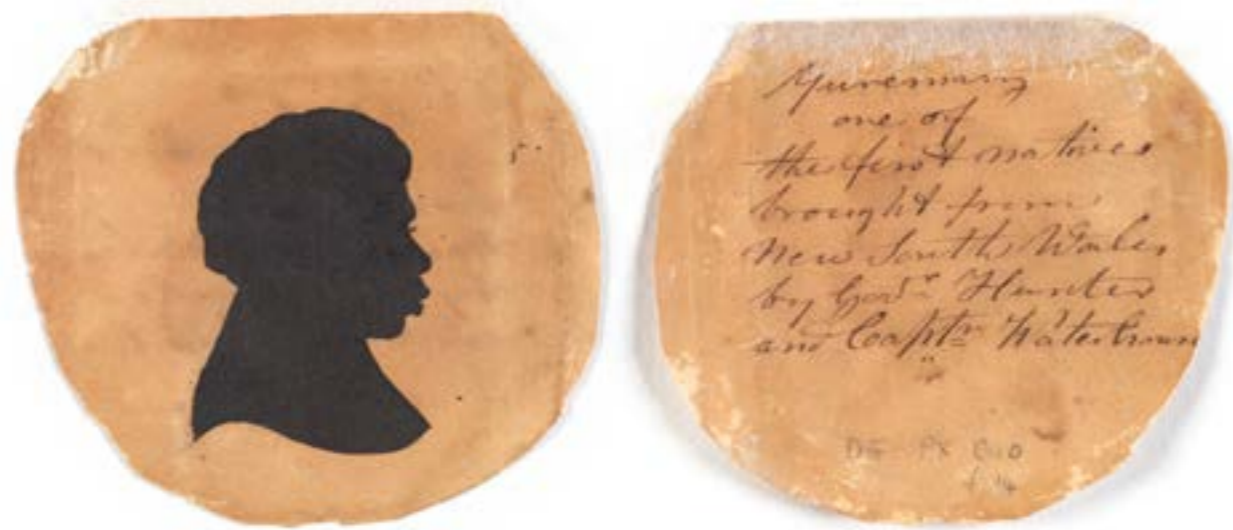 one of
the first natives
brought from
New South Wales
by Govr. Hunter
and Captn Waterhouse